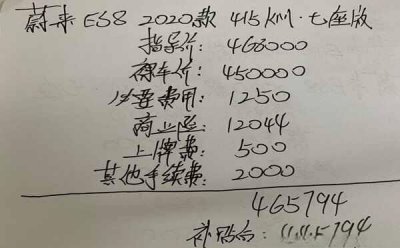 蔚来 ES8 2020款 415km·七座版
指导价: 468000
裸车价: 450000
必要费用: 1250
商业险: 12044
上牌费: 500
其他手续费: 2000
465794
补贴后: